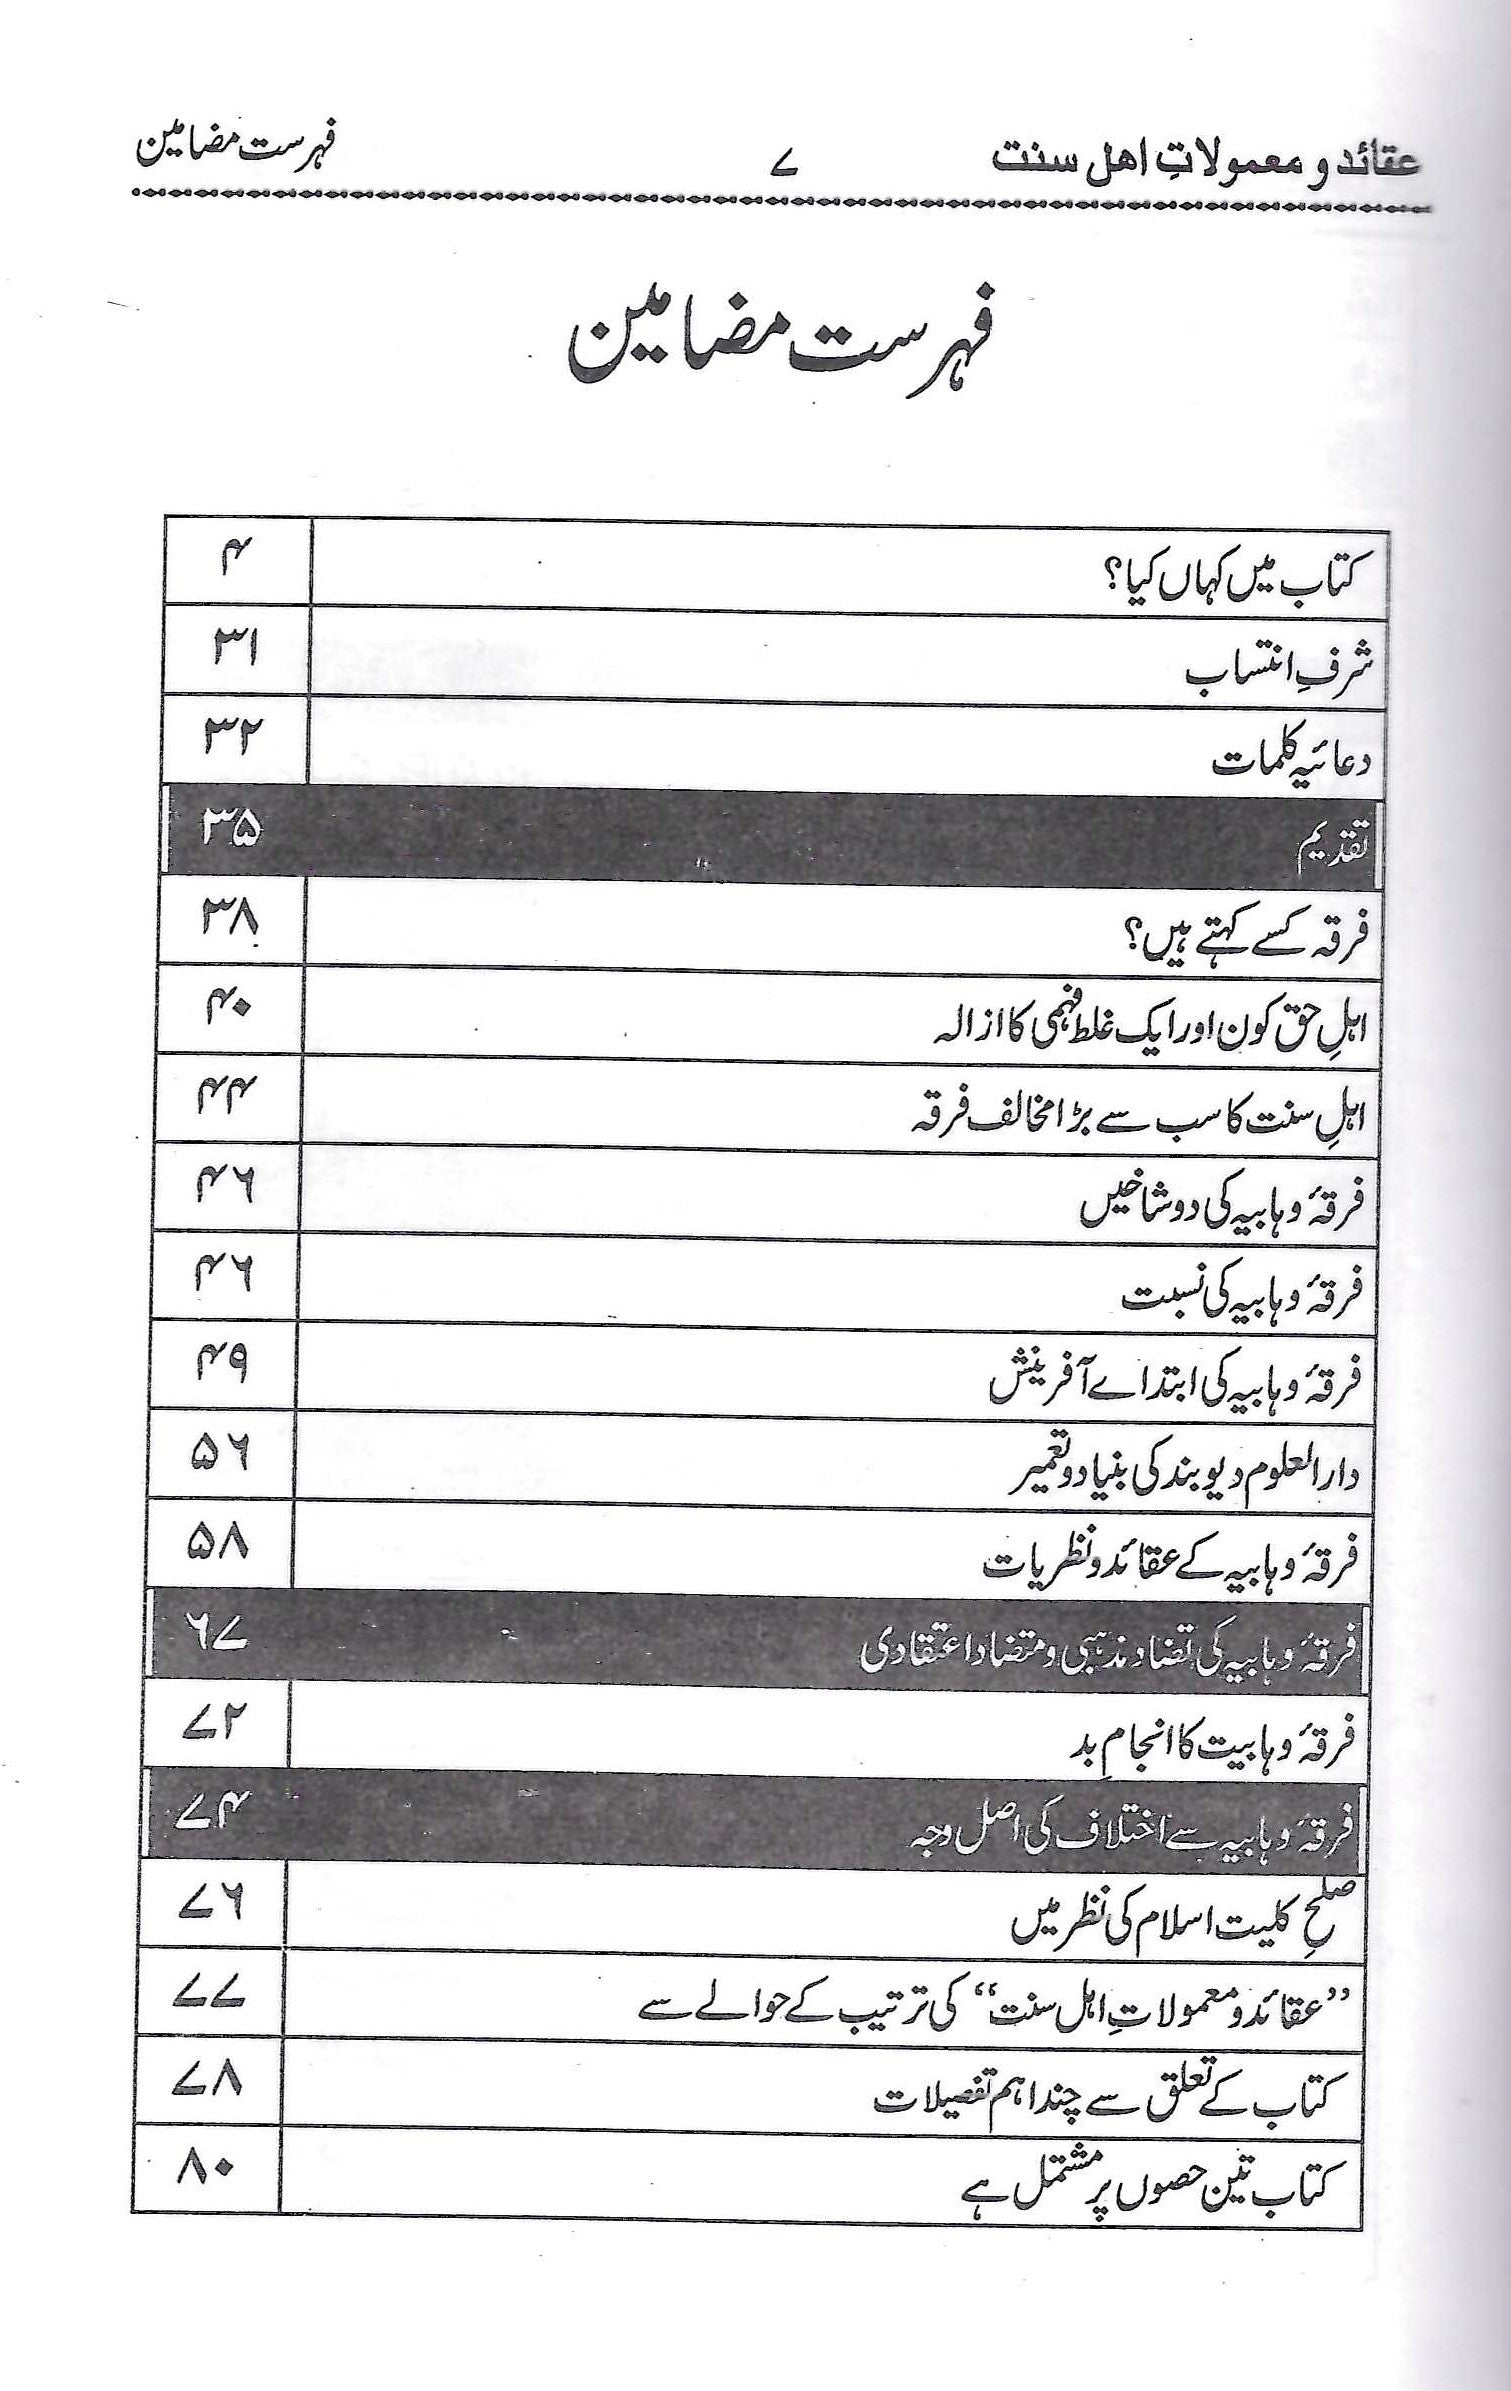 عقائد و معمولاتِ اهل سنت ۷ فہرست مضامین
فہرست مضامین
کتاب میں کہاں کیا؟ ۴
شرفِ انتساب ۳۱
دعائیہ کلمات ۳۲
تقدیم ۳۵
فرقہ کسے کہتے ہیں؟ ۳۸
اہلِ حق کون اور ایک غلط فہمی کا ازالہ ۴۰
اہلِ سنت کا سب سے بڑا مخالف فرقہ ۴۴
فرقۂ وہابیہ کی دو شاخیں ۴۶
فرقۂ وہابیہ کی نسبت ۴۶
فرقۂ وہابیہ کی ابتداے آفرینش ۴۹
دارالعلوم دیوبند کی بنیاد و تعمیر ۵۶
فرقۂ وہابیہ کے عقائد و نظریات ۵۸
فرقۂ وہابیہ کی تضاد مذہبی و متضاد اعتقادی ۶۷
فرقۂ وہابیت کا انجامِ بد ۷۲
فرقۂ وہابیہ سے اختلاف کی اصل وجہ ۷۴
صلحِ کلیت اسلام کی نظر میں ۷۶
”عقائد و معمولاتِ اہل سنت“ کی ترتیب کے حوالے سے ۷۷
کتاب کے تعلق سے چند اہم تفصیلات ۷۸
کتاب تین حصوں پر مشتمل ہے ۸۰